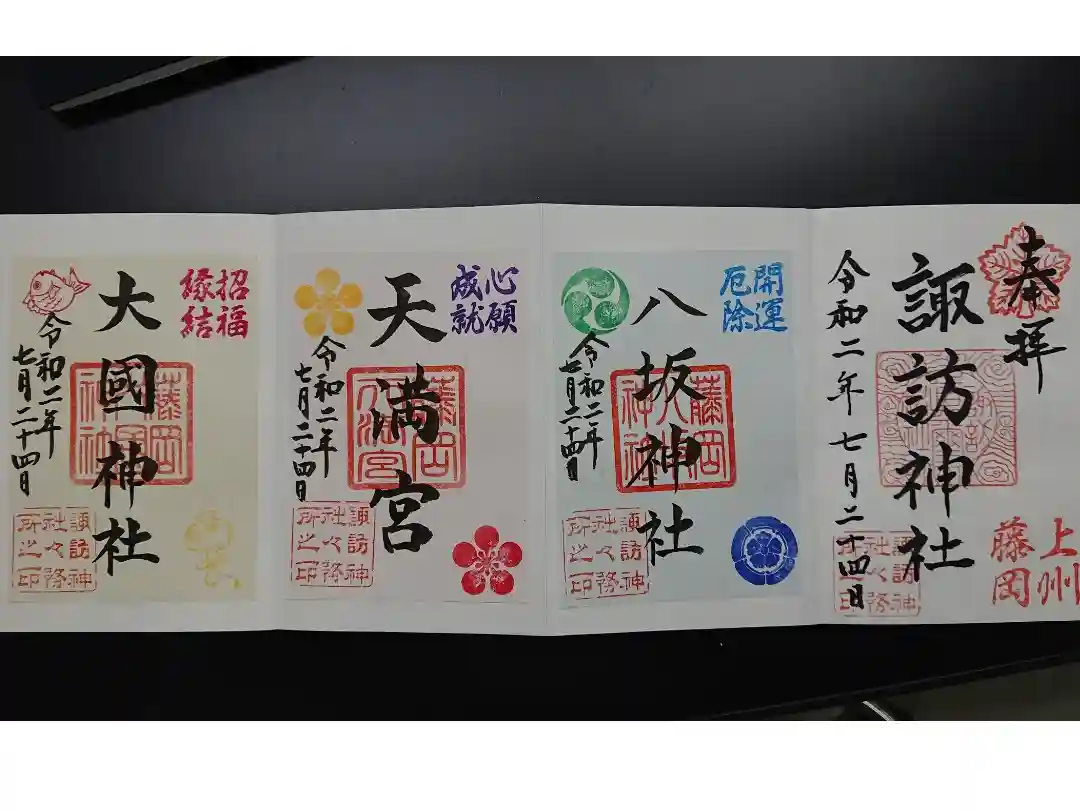 奉拝
上州
藤岡
諏訪神社
令和二年七月二十四日
諏訪神
社々務
所之印
開運
厄除
八坂神社
藤岡
令和二年
七月二十四日
諏訪神
社々務
所之印
心願
成就
天満宮
藤岡
天満宮
令和二年
七月二十四日
諏訪神
社々務
所之印
招福
縁結
大國神社
藤岡
令和二年
七月二十四日
諏訪神
社々務
所之印